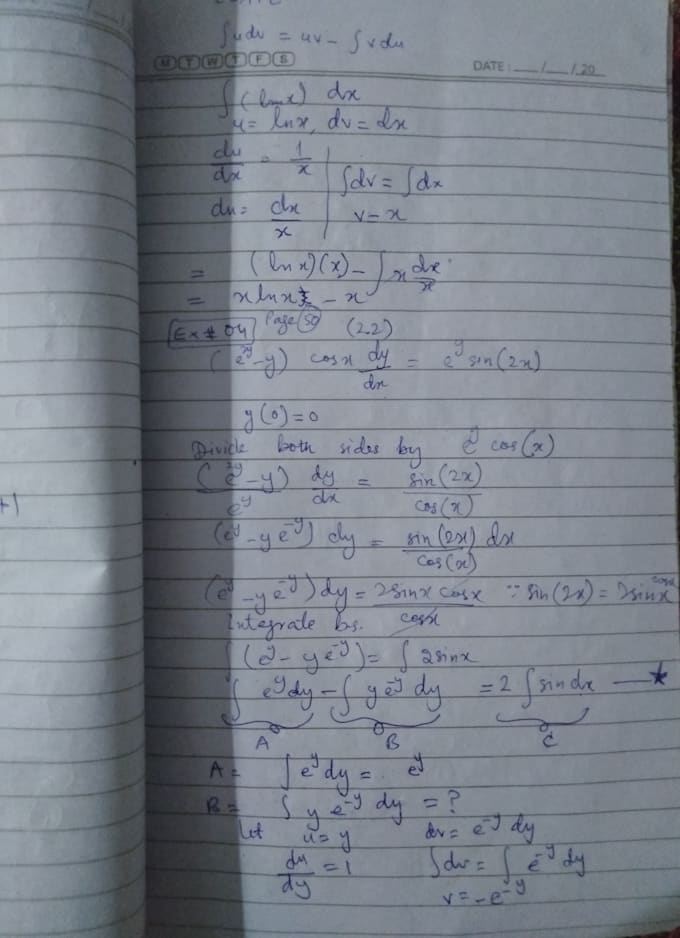 ∫udv = uv - ∫vdu
M T W T F S
DATE: __/__/20__
∫(lnx) dx
u = lnx, dv = dx
du/dx = 1/x
∫dv = ∫dx
du = dx/x
v = x
= (lnx)(x) - ∫x dx/x
= xlnx - x
Ex # 04 Page 50 (2.2)
(e^2y - y) cosx dy/dx = e^y sin(2x)
y(0) = 0
Divide both sides by e^y cos(x)
(e^2y - y)/e^y dy/dx = sin(2x)/cos(x)
+1
(e^y - y e^-y) dy = sin(2x)/cos(x) dx
(e^y - y e^-y) dy = 2sinx cosx/cosx ∵ sin(2x) = 2sinx cosx
Integrate b.s.
∫(e^y - y e^-y) = ∫2sinx
∫e^y dy - ∫y e^-y dy = 2∫sin dx —★
A B C
A = ∫e^y dy = e^y
B = ∫y e^-y dy = ?
Let u = y dv = e^-y dy
du/dy = 1 ∫dv = ∫e^-y dy
v = -e^-y